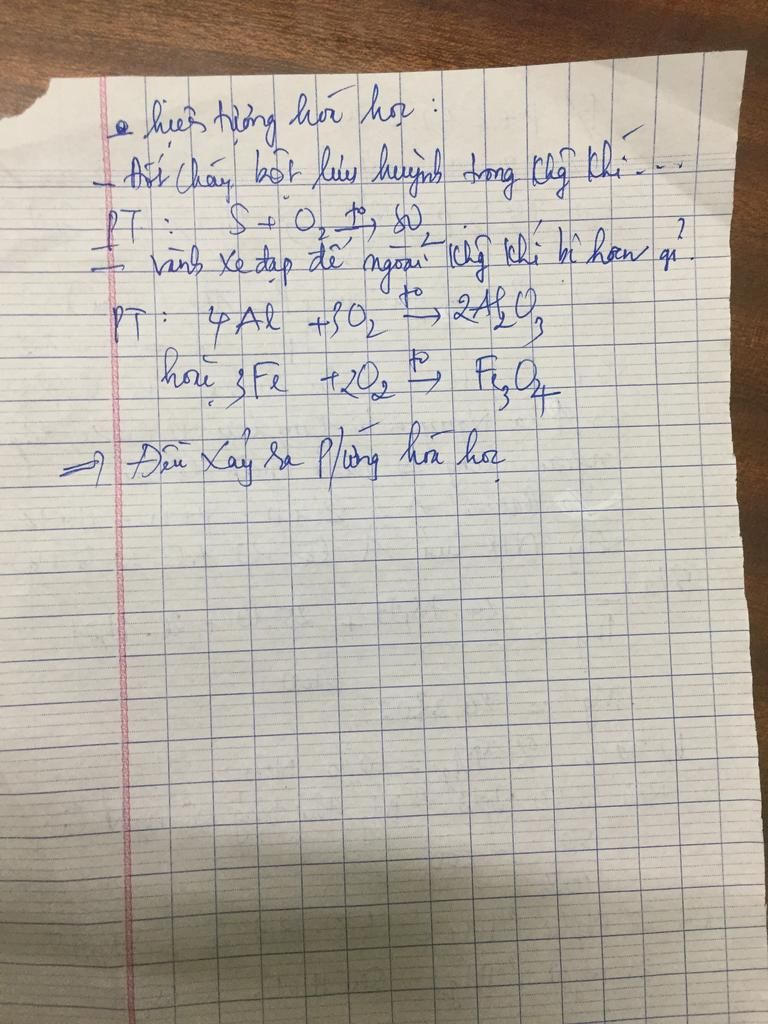 • hiện tượng hoá học :
- Đốt cháy bột lưu huỳnh trong khg khí ...
PT : S + O₂ t⁰→ SO₂
- vành xe đạp để ngoài khg khí bị hoen gỉ.
PT : 4Al + 3O₂ t⁰→ 2Al₂O₃
hoặc 3Fe + 2O₂ t⁰→ Fe₃O₄
=> Đều xảy ra p/ứng hoá học